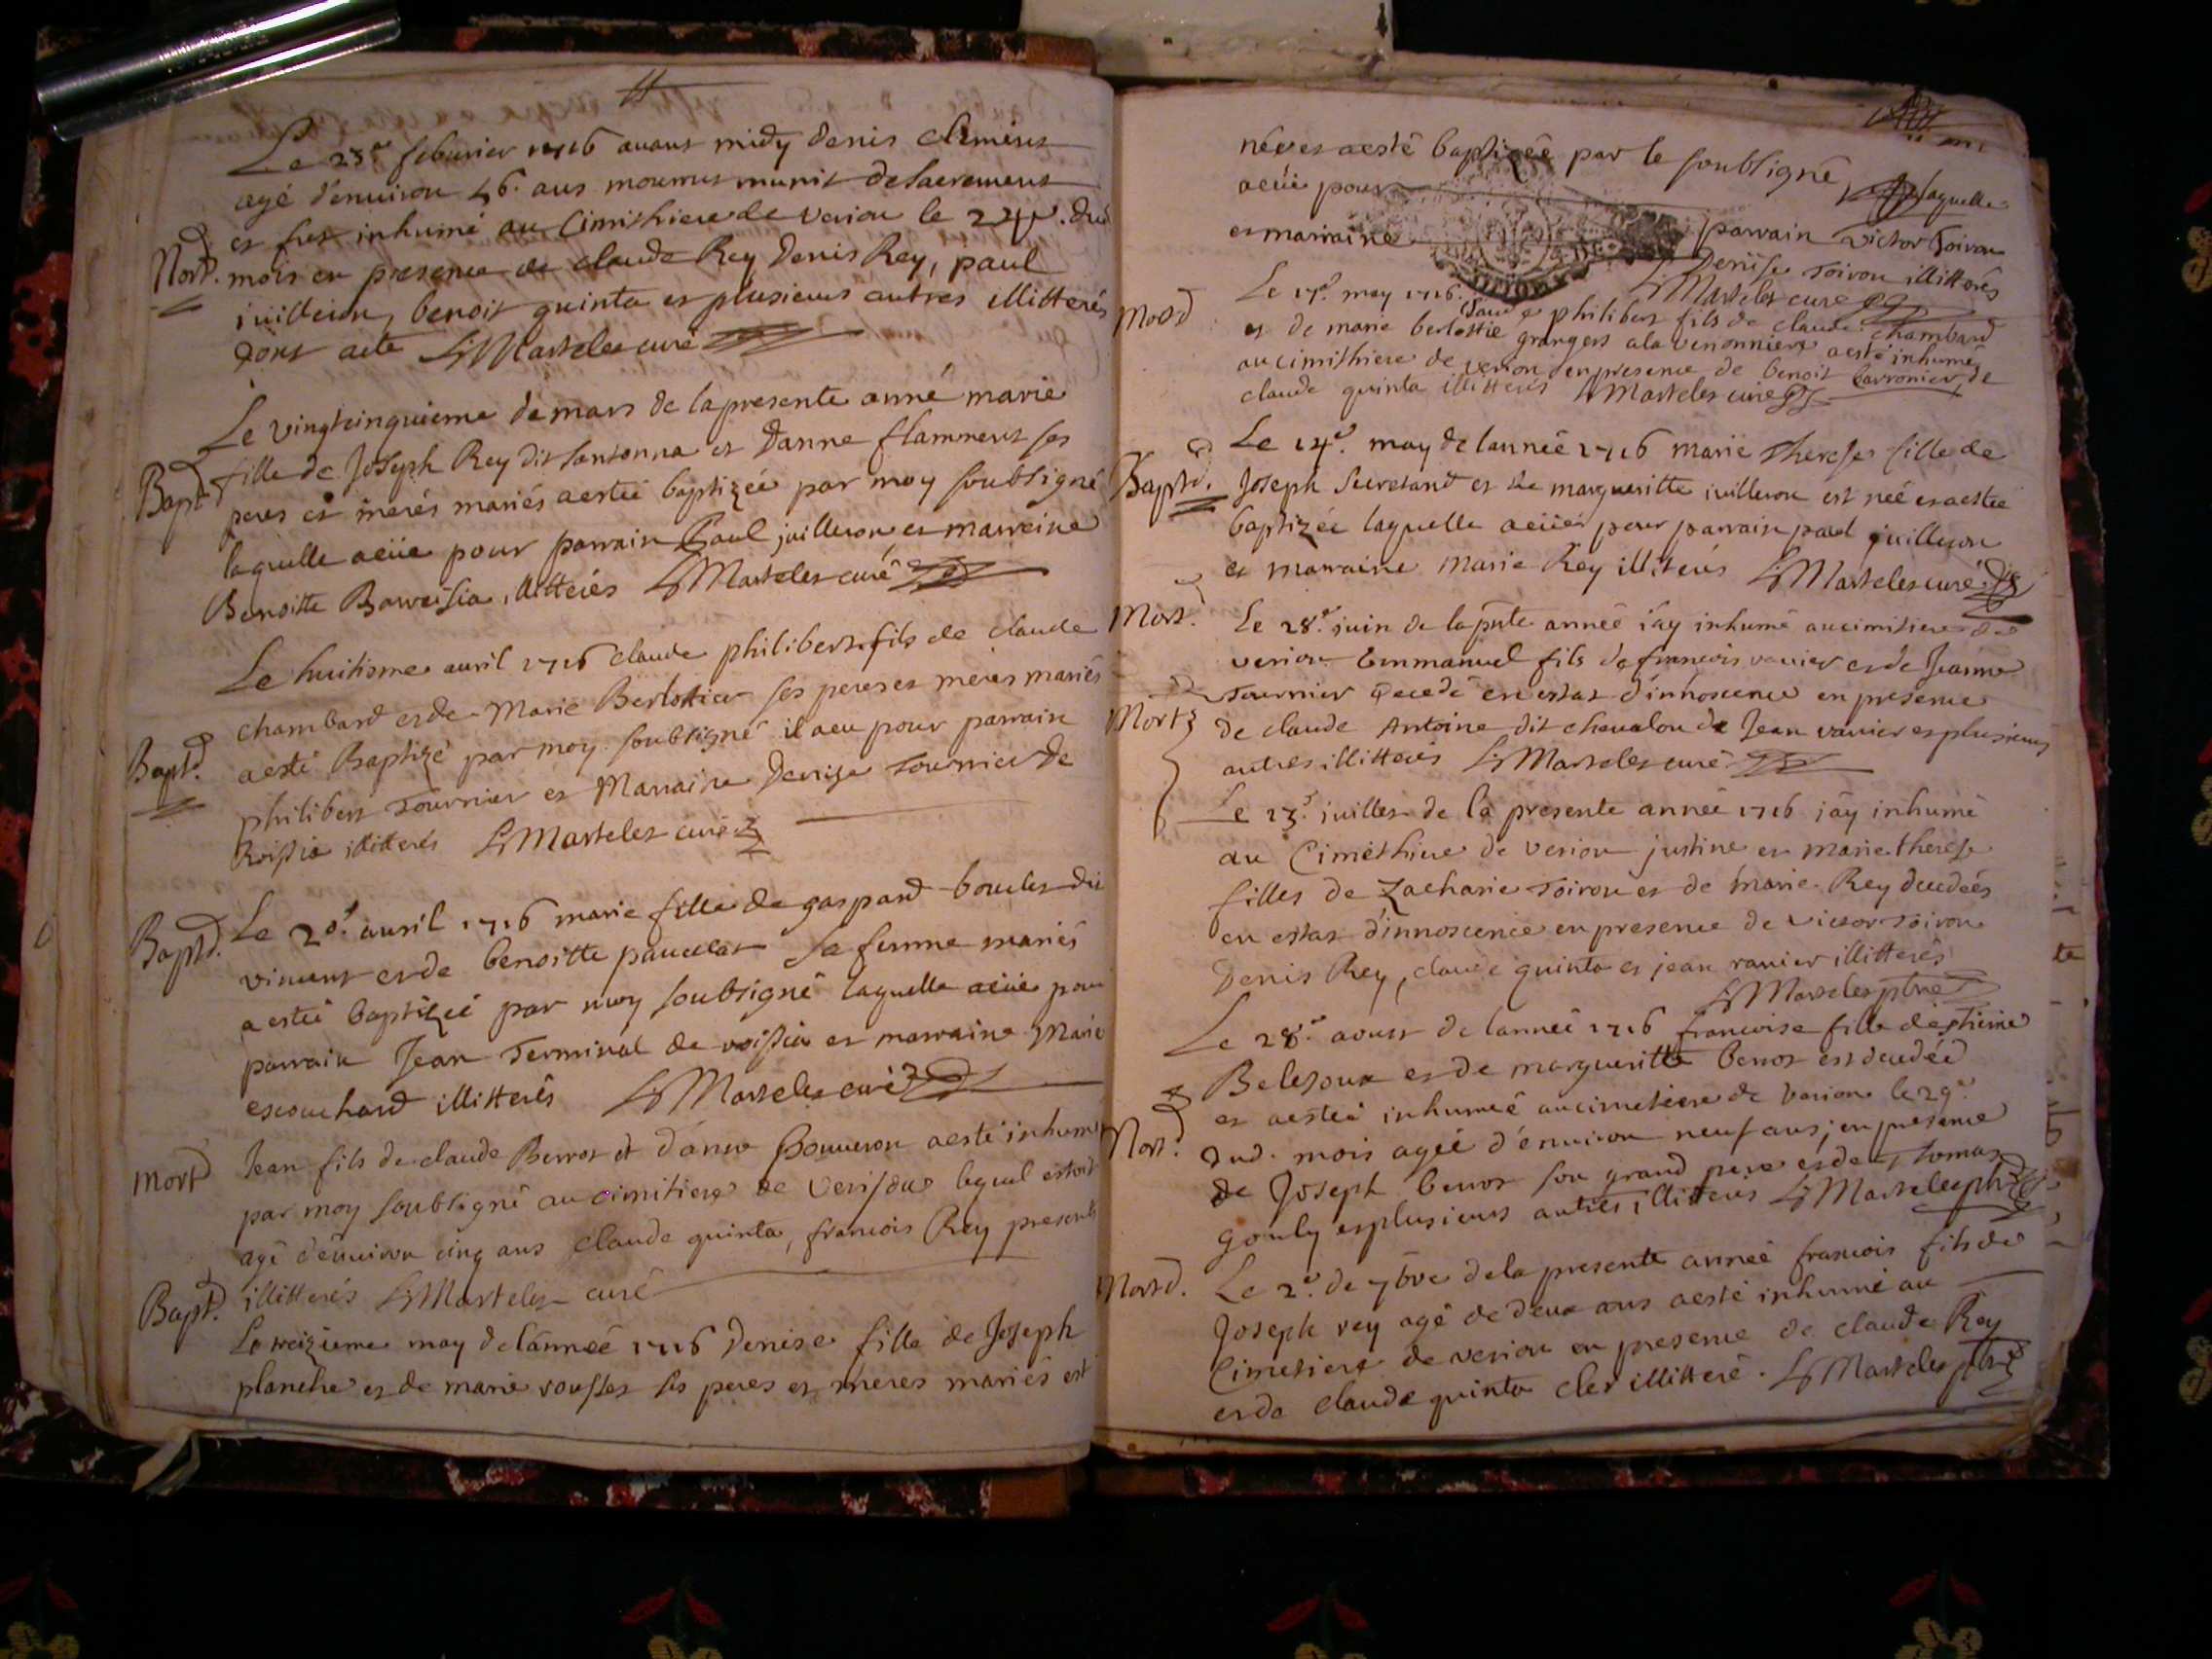 Le 23e febvrier 1716 avant midy denis clement
agé d'environ 46. ans mourut munit de sacrement
et fut inhumé au Cimithiere de verion le 24e. dud
Mort. mois en presence de claude Rey Denis Rey, paul
juilleron, benoit quinta et plusieurs autres illitterés
dont acte Marteles curé
Le vingtcinquieme de mars de la presente anné marie
Bapt fille de Joseph Rey dit santonna et d'anne flamment ses
peres et merés mariés aestée baptizeé par moy soubsigné
laquelle aeüe pour parrain Paul juilleron et marreine
Benoitte illitterés Marteles curé
Le huitisme avril 1716 claude philibert fils de claude
chambard et de Marie Berlottier ses peres et meres mariés
Baptd. aesté Baptizé par moy soubsigné il aeu pour parrain
philibert Tournier et Marraine Denise Tournier de
illitterés Marteles curé
Baptd. Le 20e. avril 1716 marie fille de gaspard boules dit
vincent et de benoitte paucelat sa femme mariés
a estée baptizée par moy soubsigné laquelle aeüe pour
parrain Jean Terminal de et marraine Marie
escouchard illitterés Marteles curé
Mort Jean fils de claude Berrot et d'anne Bouveron aesté inhumé
par moy soubsigné au cimitiere de lequel estoit
agé d'environ cinq ans claude quinta, francois Rey presents
Bapt. illitterés Marteles curé
Le treizieme may de l'anneé 1716 Denise fille de Joseph
planche et de marie rousset ses peres et meres mariés est
néé et aesté baptizeé par le soubsigné, laquelle
aeüe pour parrain victor Toirou
et marraine Denise Toirou illitterés
Marteles curé
Mort Le 17e. may 1716. Claude philibert fils de claude chambard
et de marie berlottie grangers a la venonniere aesté inhumé
au cimithiere de verion en presence de benoit de
claude quinta illitterés Marteles curé
Le 14e. may de lanneé 1716 marie Therese fille de
Baptd. Joseph Secretand et de margueritte juilleron est néé et aestée
baptizée laquelle aeüe pour parrain paul juilleron
et marraine marie Rey illiterés Marteles curé
Mort. Le 28e. juin de la pnte anneé i'ay inhumé au cimitiere de
verion Emmanuel fils de francois vanier et de Jeanne
Tournier decedé en estat d'innoscence en presence
Mort de claude Antoine dit chevalon de Jean vanier et plusieurs
autres illitterés Marteles curé
Le 13e. juillet de la presente anneé 1716 j'ay inhumé
au Ciméthiere de verion justine et marie therese
filles de Zacharie Toirou et de marie Rey decedeés
en estat d'innoscence en presence de victor Toirou
Denis Rey, claude quinta et jean vanier illitterés
Marteles pbre
Le 28e. aoust de lanneé 1716 francoise fille destiene
et de margueritte berrot est decedéé
et aesteé inhumeé au cimetiere de verion le 29e
Mort. dud. mois ageé d'environ neuf ans; en presence
de Joseph berrot son grand pere et de Tomas
gouly et plusieurs autres illitterés Marteles pbr
Mortd. Le 2e. de 7bre de la presente anneé francois fils de
Joseph rey agé de deux ans aesté inhumé au
Cimetiere de verion en presence de claude Rey
et de claude quinta cler illitteré. Marteles pbr